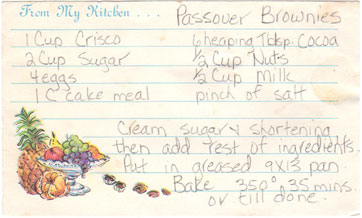 From My Kitchen . . .
Passover Brownies
1 Cup Crisco
2 Cup Sugar
4 eggs
1 C cake meal
6 heaping Tblsp. Cocoa
1/2 Cup Nuts
1/2 Cup Milk
pinch of salt
Cream sugar & shortening
then add rest of ingredients.
Put in greased 9x13 pan.
Bake 350° 35 mins.
or till done.